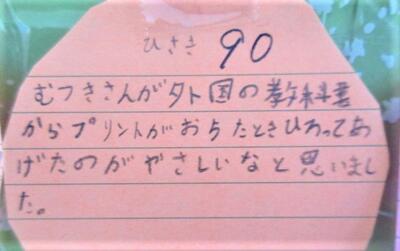 ひさき 90
むつきさんが外国の教科書
からプリントがおちたときひろってあ
げたのがやさしいなと思いまし
た。